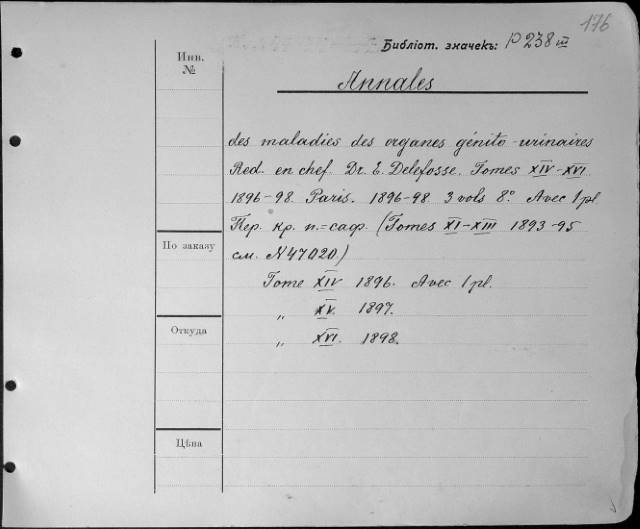 176
Библіот. значекъ: P 238 III
Инв.
№
Annales
des maladies des organes génito-urinaires
Red. en chef Dr. E. Delefosse. Tomes XIV-XVI
1896-98. Paris. 1896-98. 3 vols 8°. Avec 1 pl.
Пер. кр. п.=саф. (Tomes XI-XIII 1893-95
По заказу
см. N47020)
Tome XIV 1896. Avec 1 pl.
„ XV. 1897.
Откуда
„ XVI. 1898.
Цѣна